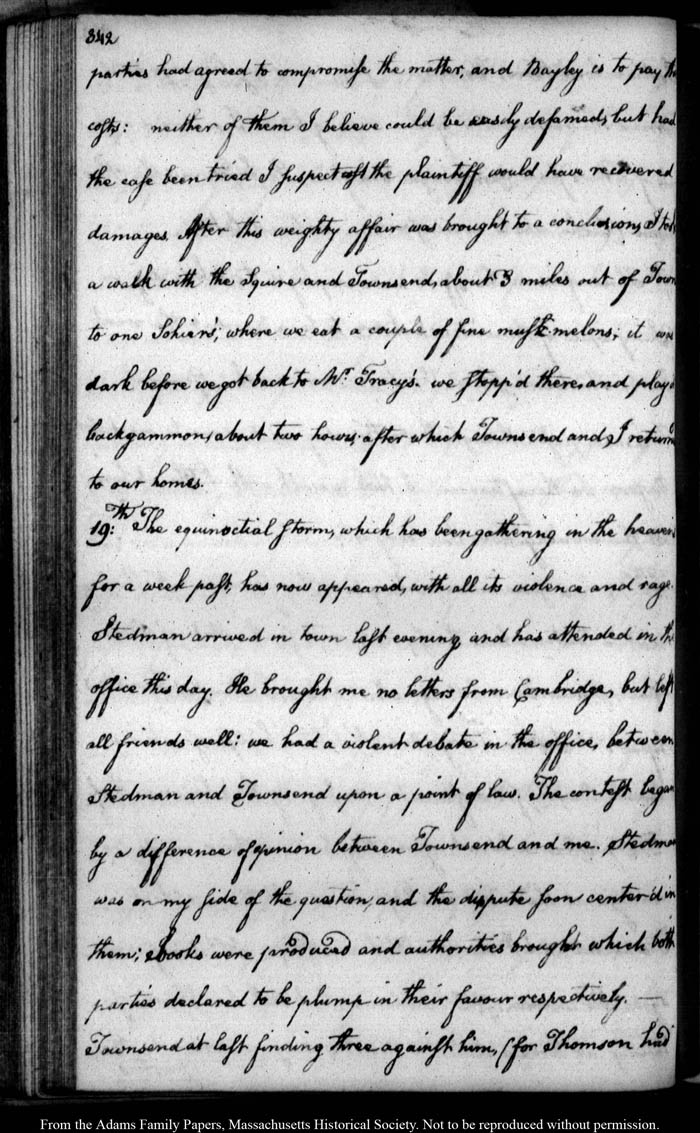 342
parties had agreed to compromise the matter, and Bayley is to pay the
costs: neither of them I believe could be easily defamed, but had
the case been tried I suspect the plaintiff would have recovered
damages. After this weighty affair was brought to a conclusion, I took
a walk with the Squire and Townsend, about 3 miles out of Town
to one Sohier's, where we eat a couple of fine musk-melons; it was
dark before we got back to Mr. Tracy's. we stopp'd there, and play'd
backgammon, about two hours; after which Townsend and I return'd
to our homes.
19:th The equinoctial storm, which has been gathering in the heavens
for a week past, has now appeared, with all its violence and rage.
Stedman arrived in town last evening, and has attended in the
office this day. He brought me no letters from Cambridge, but left
all friends well: we had a violent debate in the office, between
Stedman and Townsend upon a point of law. The contest began
by a difference of opinion between Townsend and me. Stedman
was on my side of the question, and the dispute soon center'd in
them; books were produced and authorities brought which both
parties declared to be plump in their favour respectively. —
Townsend at last finding three against him, (for Thomson had
From the Adams Family Papers, Massachusetts Historical Society. Not to be reproduced without permission.